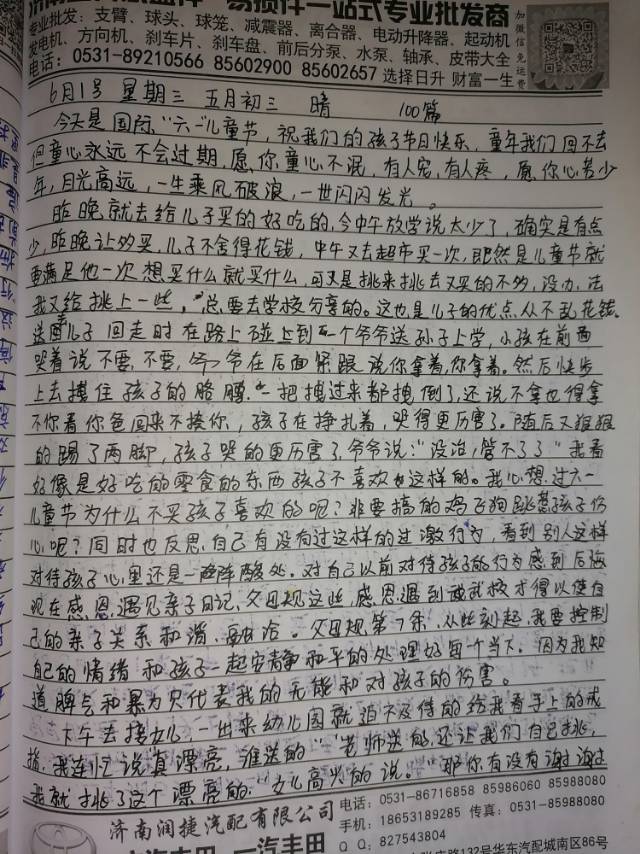 易损件一站式专业批发商
专业批发：支臂、球头、球笼、减震器、离合器、电动升降器、起动机
发电机、方向机、刹车片、刹车盘、前后分泵、水泵、轴承、皮带大全
电话：0531-89210566 85602900 85602657 选择日升 财富一生
加微信免运费
6月1号 星期三 五月初三 晴 100篇
今天是国际"六一"儿童节，祝我们的孩子节日快乐，童年我们回不去
但童心永远不会过期，愿你童心不泯，有人宠，有人疼，愿你心若少
年，月光高远，一生乘风破浪，一世闪闪发光。
昨晚就去给儿子买的好吃的，今中午放学说太少了，确实是有点
少，昨晚让多买，儿子不舍得花钱，中午又去超市买一次，既然是儿童节就
要满足他一次想买什么就买什么，可又是挑来挑去又买的不多，没办法
我又给挑上一些，总要去学校分享的。这也是儿子的优点，从不乱花钱。
送儿子回走时在路上碰上到一个爷爷送孙子上学，小孩在前面
哭着说不要，不要，爷爷在后面紧跟说你拿着，你拿着。然后快步
上去拽住孩子的胳膊，一把拽过来都拽倒了，还说不拿也得拿
不你看你爸回来不揍你，孩子在挣扎着，哭得更厉害了。随后又狠狠
的踢了两脚，孩子哭的更厉害了，爷爷说："没治，管不了了"我看
好像是好吃的零食的东西孩子不喜欢这样的。我心想，过六一
儿童节为什么不买孩子喜欢的呢？非要搞的鸡飞狗跳惹孩子伤
心呢？同时也反思，自己有没有过这样的过激行为，看到别人这样
对待孩子心里还是一阵阵酸处。对自己以前对待孩子的行为感到后悔
现在感恩遇见亲子日记，父母规这些，感恩遇到 我校才得以使自
己的亲子关系和谐，融洽。父母规第7条，从此刻起，我要控制
自己的情绪和孩子一起安静和平的处理好每个当下。因为我知
道脾气和暴力只代表我的无能和对孩子的伤害。
下午去接女儿，一出来幼儿园就迫不及待的给我看手上的戒
指，我连忙说真漂亮，谁送的"老师送的，还让我们自己挑，
我就挑了这个漂亮的"女儿高兴的说。"那你有没有谢谢
济南润捷汽配有限公司
电话：0531-86716858 85986060 85988080
手机：18653189285 传真：0531-85988080
Q Q：827543804
一汽丰田
132号华东汽配城南区86号